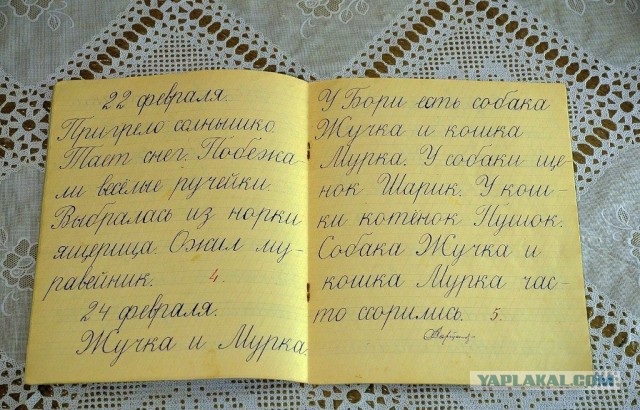 22 февраля.
Пригрело солнышко.
Тает снег. Побежа-
ли весёлые ручейки.
Выбралась из норки
ящерица. Ожил му-
равейник. 4
24 февраля.
Жучка и Мурка.
У Бори есть собака
Жучка и кошка
Мурка. У собаки ще-
нок Шарик. У кош-
ки котёнок Пушок.
Собака Жучка и
кошка Мурка час-
то ссорились. 5.
YAPLAKAL.COM